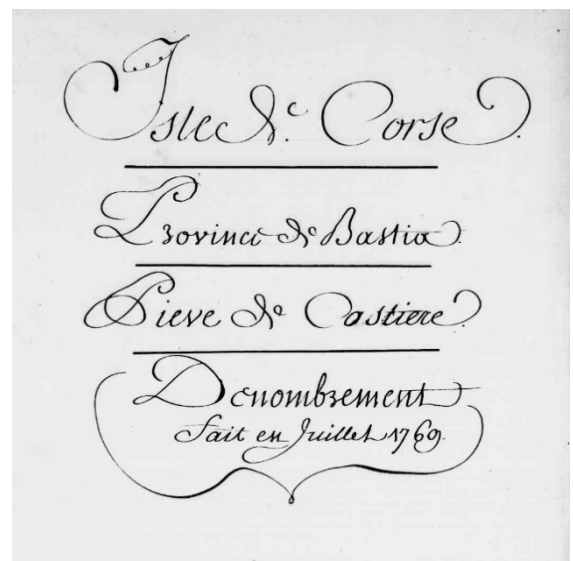 Isle de Corse.
Province de Bastia.
Pieve de Castiere
Denombrement
fait en Juillet 1769.